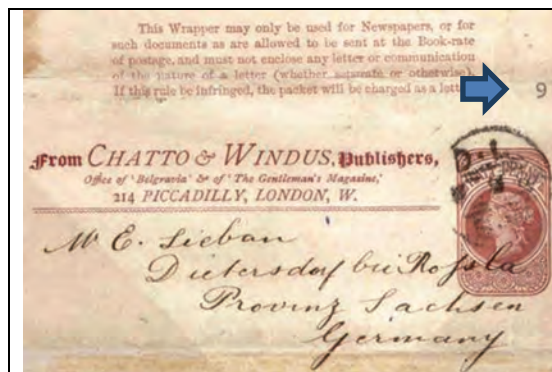 This Wrapper may only be used for Newspapers, or for
such documents as are allowed to be sent at the Book-rate
of postage, and must not enclose any letter or communication
of the nature of a letter (whether separate or otherwise).
If this rule be infringed, the packet will be charged as a letter.
9
From CHATTO & WINDUS, Publishers,
Office of 'Belgravia' & of 'The Gentleman's Magazine,'
214 PICCADILLY, LONDON, W.
Mr E. Lieban
Dietersdorf bei Rossla
Provinz Sachsen
Germany